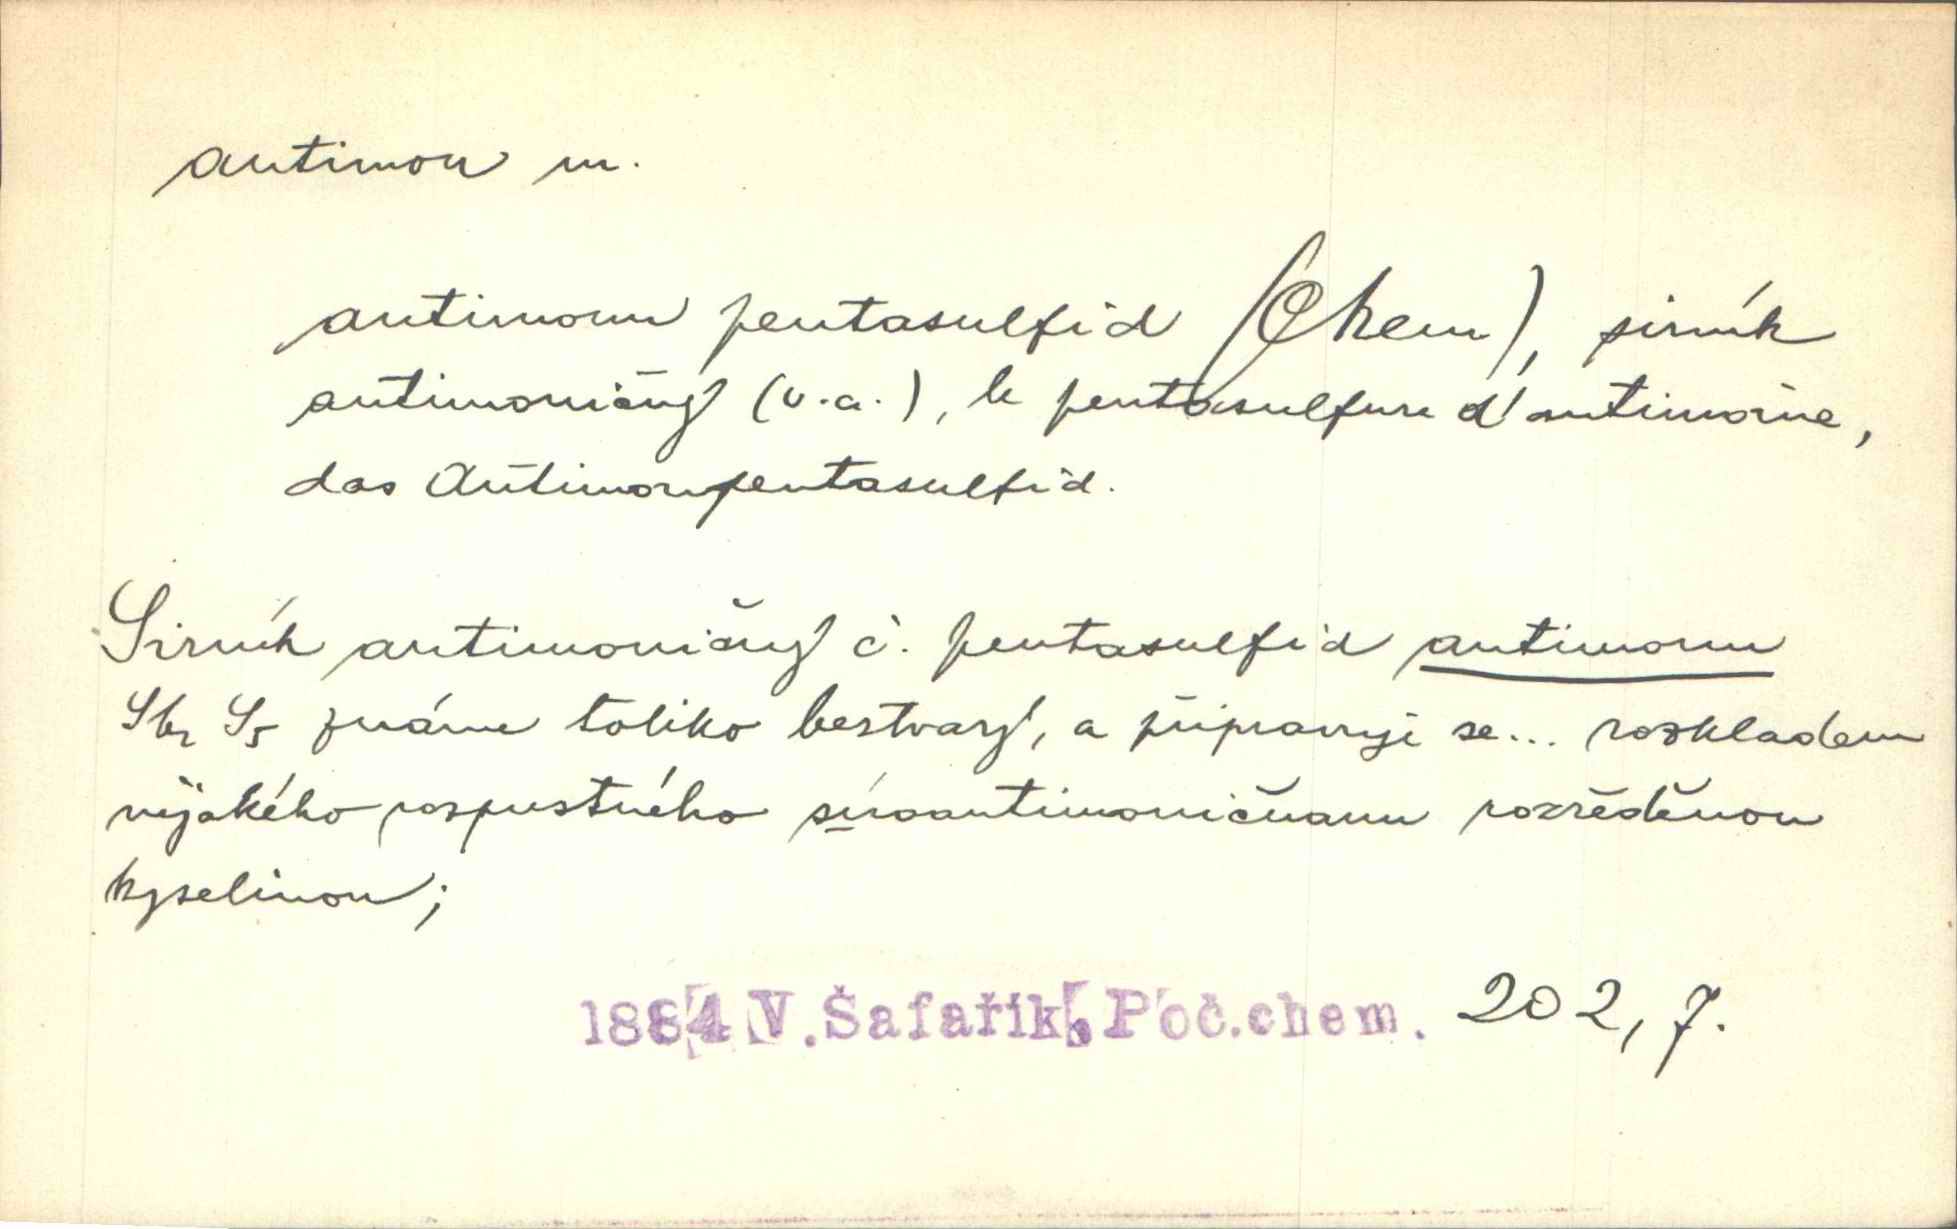 antimon m.
antimonu pentasulfid (Chem), sirník
antimoničný (v.a.), le pentasulfure d'antimoine,
das Antimonpentasulfid.
Sirník antimoničný č. pentasulfid antimonu
Sb₂ S₅ známe toliko beztvarý, a připravuje se... rozkladem
nějakého rozpustného síroantimoničnanu rozředěnou
kyselinou;
1884 V. Šafařík. Poč.chem. 202, 7.